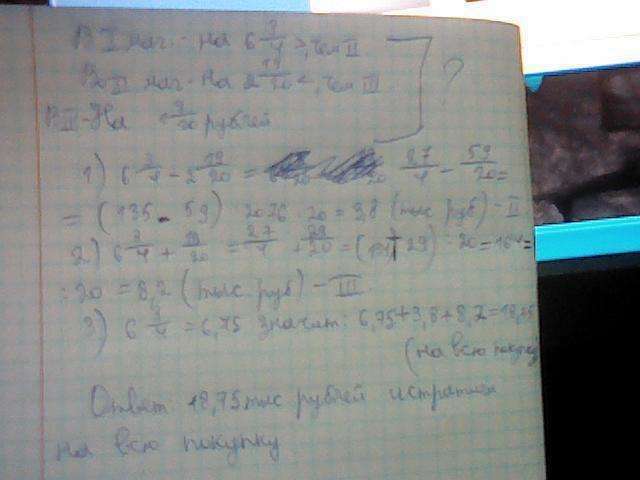 В I маг. - на 6 3/4 >, чем II
Во II маг. - на 2 19/20 <, чем III
В III - На 9/20 рублей
?
1) 6 3/4 - 2 19/20 = 27/4 - 59/20 =
= (135 - 59) : 20 = 76 : 20 = 3,8 (тыс руб) - II
2) 6 3/4 + = 27/4 + 29/20 = ( 29) : 20 = 164 :
: 20 = 8,2 (тыс руб) - III
3) 6 3/4 = 6,75 значит: 6,75 + 3,8 + 8,2 = 18,75
(на всю покупку)
Ответ: 18,75 тыс рублей истратили
на всю покупку